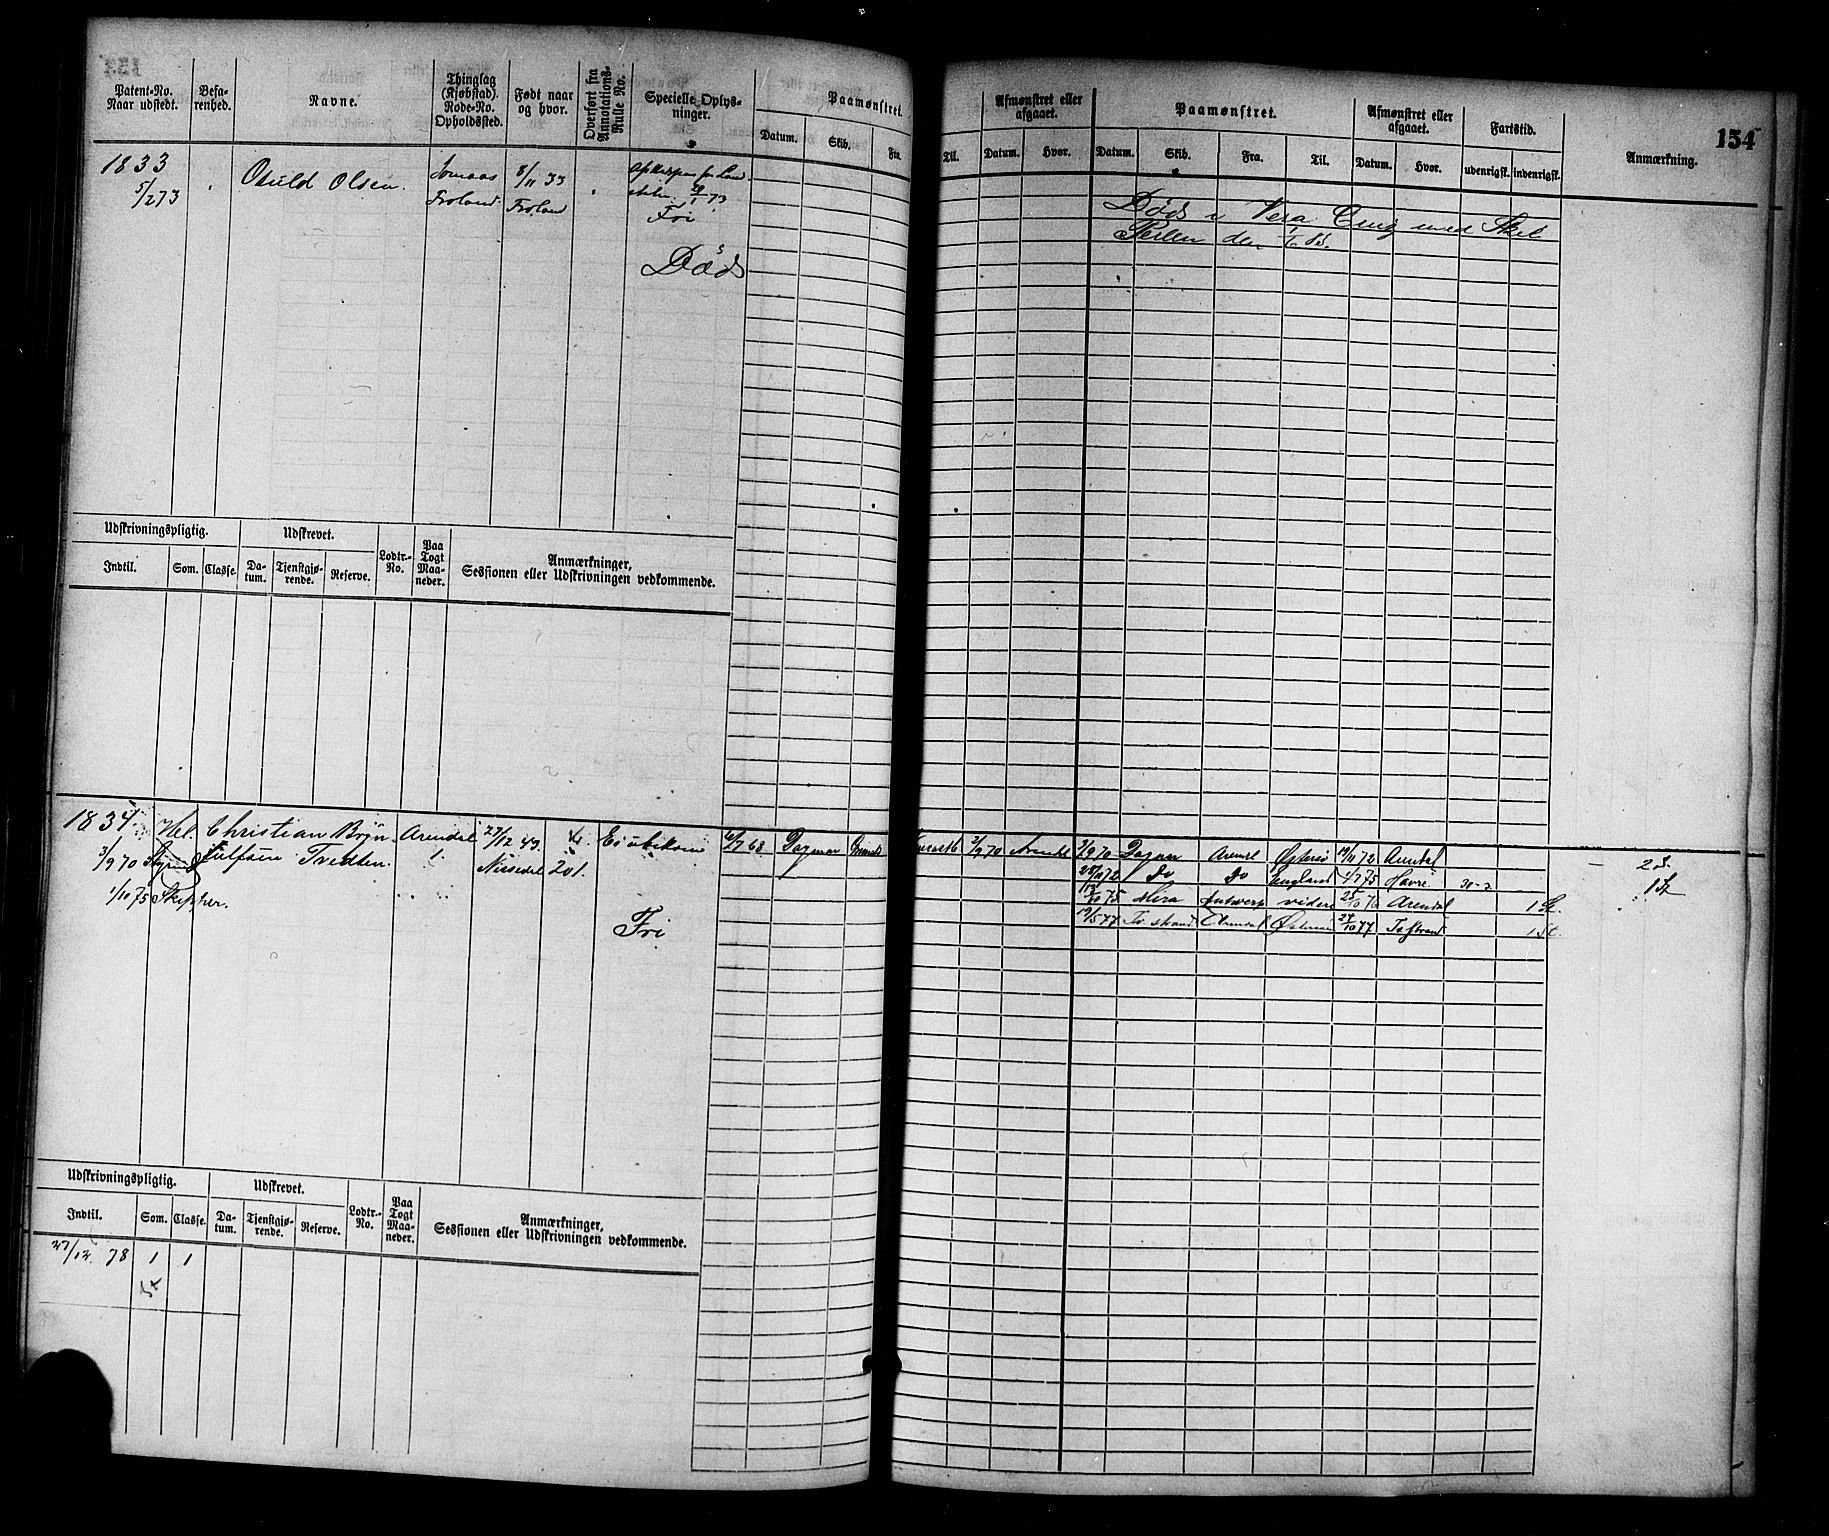 154
Patent-No.
Naar udstedt.
Befa-
renhed.
Navne.
Thinglag
(Kjøbstad).
Rode-No.
Opholdssted.
Født naar
og hvor.
Overført fra
Annotations-
Rulle No.
Specielle Oplys-
ninger.
Paamønstret.
Datum.
Skib.
Fra.
Til.
Afmønstret eller
afgaaet.
Datum.
Hvor.
Paamønstret.
Datum.
Skib.
Fra.
Til.
Afmønstret eller
afgaaet.
Datum.
Hvor.
Fartstid.
udenrigsk.
indenrigsk.
Anmærkning.
1833
5/2 73
Osuld Olsen.
Froland
8/11 33
Froland
Fri
Død
Død i Vera Cruz med Skib
den
Udskrivningspligtig.
Indtil.
Som.
Classe.
Udskrevet.
Da-
tum.
Tjenstgjø-
rende.
Reserve.
Lodtr.-
No.
Paa
Togt
Maa-
neder.
Anmærkninger,
Sessionen eller Udskrivningen vedkommende.
1834
3/9 70
1/10 75 Skipper.
Christian Bryn
Tredten.
Arendal
1.
27/12 43
Nissedal
201.
Fri
6/7 68 Dagmar
3/9 70 Arendal
3/9 70
Østersø 19/11 72 Arendal
2 S.
72 do do England 1/7 75 Havre
75 Mira Antwerp videre 76 Arendal
19/5 77 Arendal 24/10 77
Udskrivningspligtig.
Indtil.
Som.
Classe.
Udskrevet.
Da-
tum.
Tjenstgjø-
rende.
Reserve.
Lodtr.-
No.
Paa
Togt
Maa-
neder.
Anmærkninger,
Sessionen eller Udskrivningen vedkommende.
27/12 78 1 1